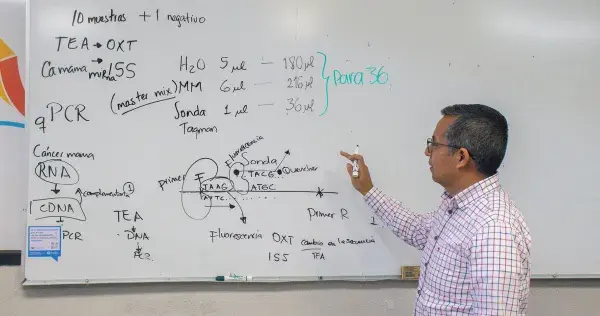 10 muestras + 1 negativo
TEA → OXT
Ca mama miRNA 155
qPCR
H2O 5 µl — 180 µl
(master mix) MM 6 µl — 216 µl
Sonda 1 µl — 36 µl
Taqman
para 36
Cáncer mama
RNA
complementaria 1
cDNA
PCR
TEA
DNA
PCR
primer F
Fluorescencia
Sonda
Quencher
TACG
ATGC
Primer R
Fluorescencia
OXT cambio en la secuencia
155 TEA